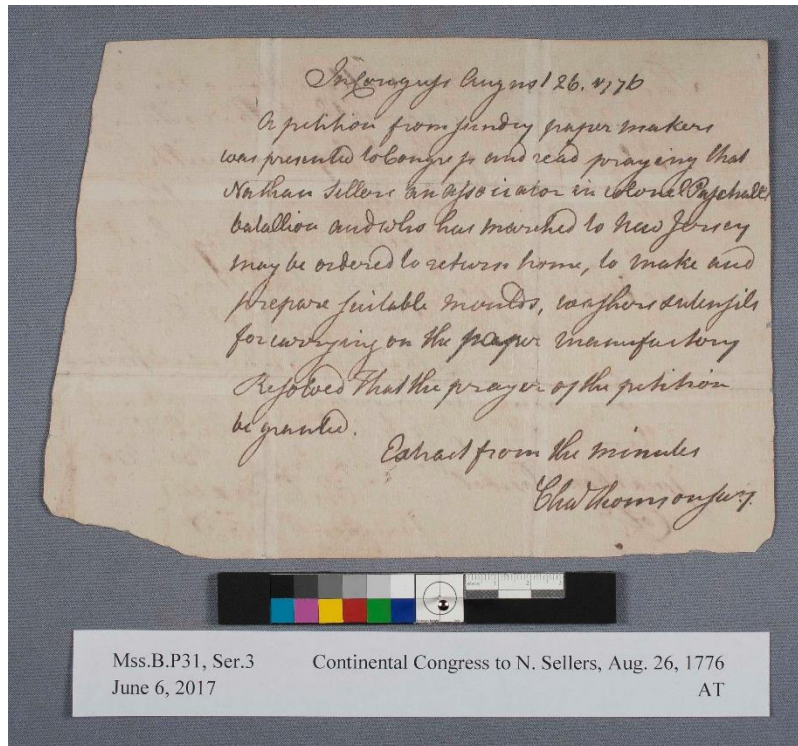 In Congress August 26. 1776
A petition from sundry paper makers
was presented to Congress and read praying that
Nathan Sellers an associator in colonel Paschall's
batallion and who has marched to New Jersey
may be ordered to return home, to make and
prepare suitable moulds, washers & utensils
for carrying on the paper manufactory
Resolved That the prayer of the petition
be granted.
Extract from the minutes
Cha Thomson secy.
Mss.B.P31, Ser.3 Continental Congress to N. Sellers, Aug. 26, 1776
June 6, 2017 AT